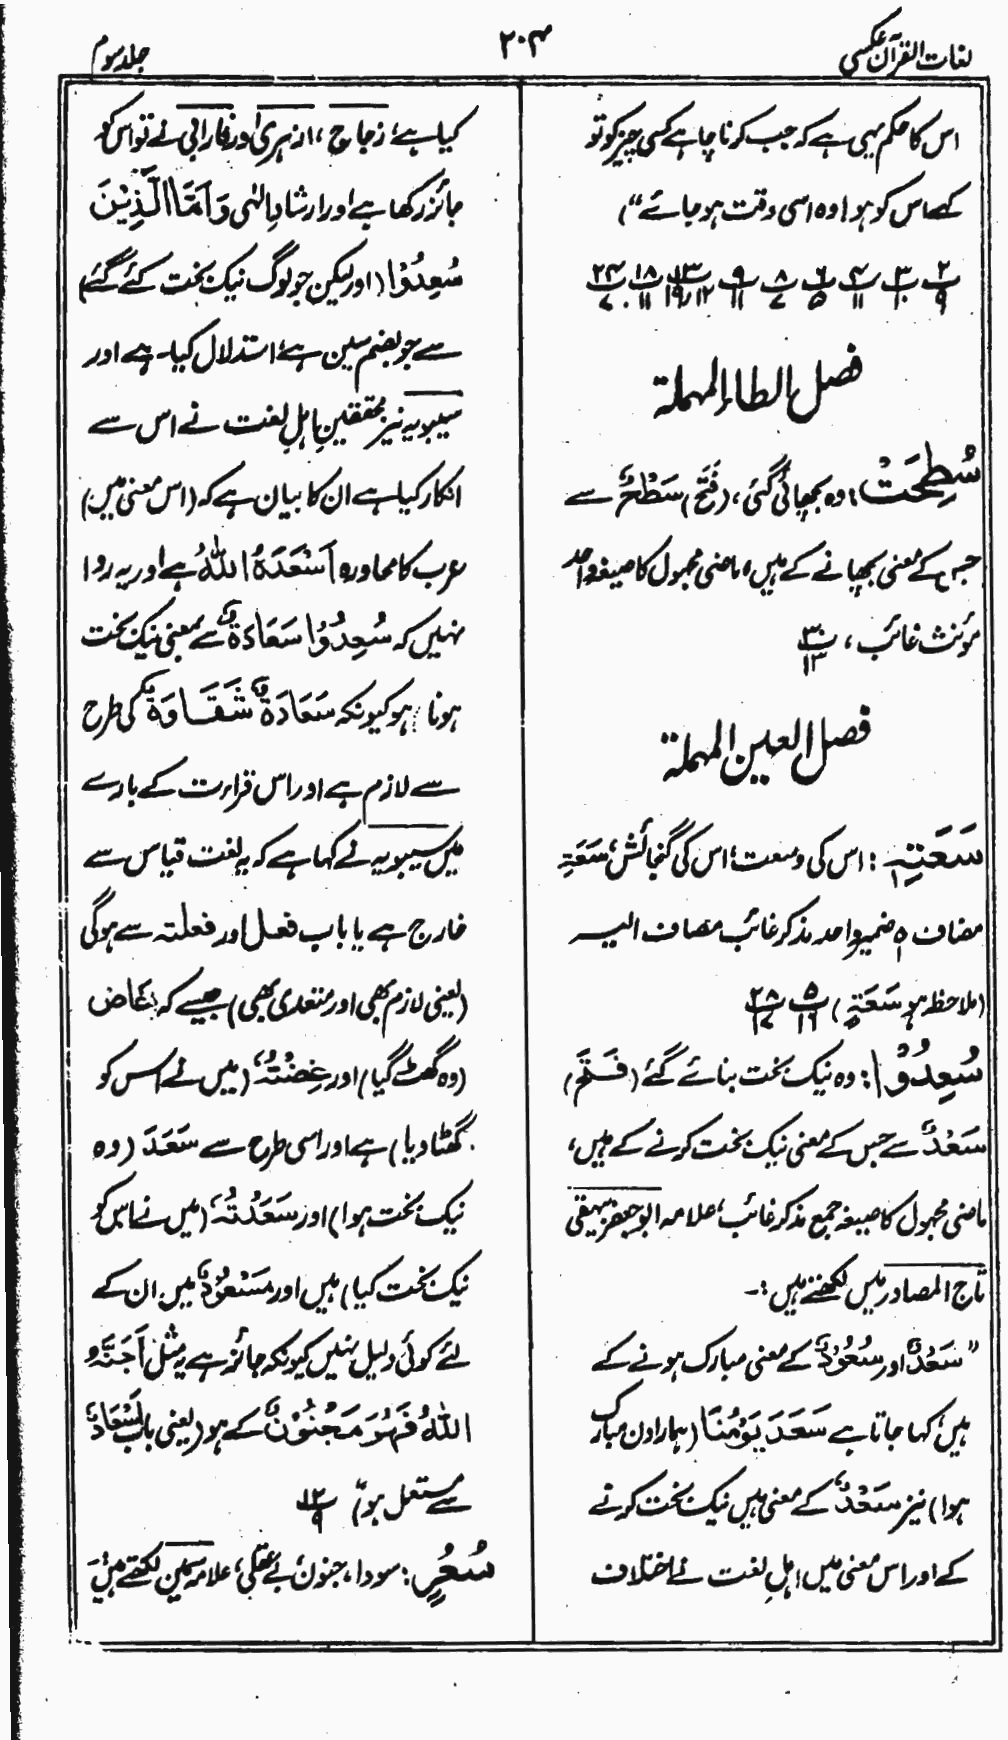 لغات القرآن عکسی
۲۰۴
جلد سوم
اس کا حکم یہی ہے کہ جب کرنا چاہے کسی چیز کو تو
کہے اس کو ہو! وہ اسی وقت ہو جائے“)
فصل الطاء المہملۃ
سُطِحَتْ: وہ بچھائی گئی، (فَتَحَ) سَطْحٌ سے
جس کے معنی بچھانے کے ہیں، ماضی مجہول کا صیغہ واحد
مؤنث غائب، ۳۰/۱۳
فصل العین المہملۃ
سَعَتِہٖ: اس کی وسعت، اس کی گنجائش، سَعَۃِ
مضاف ہٖ ضمیر واحد مذکر غائب مضاف الیہ
(ملاحظہ ہو سَعَۃٍ) ۵/۱۶ ۲۸/۱۷
سُعِدُوْا: وہ نیک بخت بنائے گئے (فَتَحَ)
سَعْدٌ سے جس کے معنی نیک بخت کرنے کے ہیں،
ماضی مجہول کا صیغہ جمع مذکر غائب، علامہ ابو جعفر بیہقی
تاج المصادر میں لکھتے ہیں:۔
”سَعْدٌ اور سُعُوْدٌ کے معنی مبارک ہونے کے
ہیں، کہا جاتا ہے سَعَدَ یَوْمُنَا (ہمارا دن مبارک
ہوا) نیز سَعْدٌ کے معنی ہیں نیک بخت کرنے
کے اور اس معنی میں اہلِ لغت نے اختلاف
کیا ہے، زجاج، ازہری اور فارابی نے تو اس کو
جائز رکھا ہے اور ارشادِ الٰہی وَاَمَّا الَّذِیْنَ
سُعِدُوْا (اور لیکن جو لوگ نیک بخت کئے گئے)
سے جو بضم سین ہے، استدلال کیا ہے اور
سیبویہ نیز محققینِ اہلِ لغت نے اس سے
انکار کیا ہے ان کا بیان ہے کہ (اس معنی میں)
عرب کا محاورہ اَسْعَدَہُ اللّٰہُ ہے اور یہ روا
نہیں کہ سُعِدُوْا سَعَادَۃٌ سے بمعنی نیک بخت
ہونا ہو کیونکہ سَعَادَۃٌ شَقَاوَۃٌ کی طرح
سے لازم ہے اور اس قراءت کے بارے
میں سیبویہ نے کہا ہے کہ یہ لغت قیاس سے
خارج ہے یا باب فعل اور فعلتہ سے ہوگی
(یعنی لازم بھی اور متعدی بھی) جیسے کہ غاض
(وہ گھٹ گیا) اور غِضْتُہٗ (میں نے اس کو
گھٹا دیا) ہے اور اسی طرح سے سَعَدَ (وہ
نیک بخت ہوا) اور سَعَدْتُہٗ (میں نے اس کو
نیک بخت کیا) ہیں اور مَسْعُوْدٌ میں ان کے
لئے کوئی دلیل نہیں کیونکہ جائز ہے یہ مثل اَجَنَّہُ
اللّٰہُ فَہُوَ مَجْنُوْنٌ کے ہو (یعنی باب اِسْعَادٌ
سے مستعمل ہو)“ ۱۲/۹
سُعُرٍ: سودا، جنون، بے عقلی، علامہ سمین لکھتے ہیں،۔